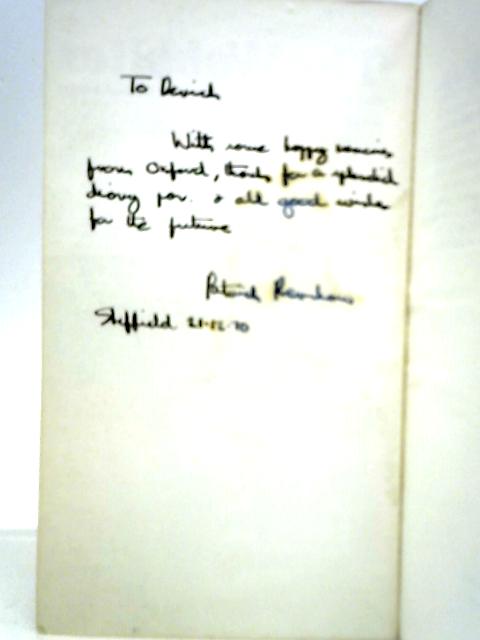 To Derrick
With some happy memories
from Oxford, thanks for a splendid
diary &
all good wishes
for the future
Patrick
Sheffield 21.12.70